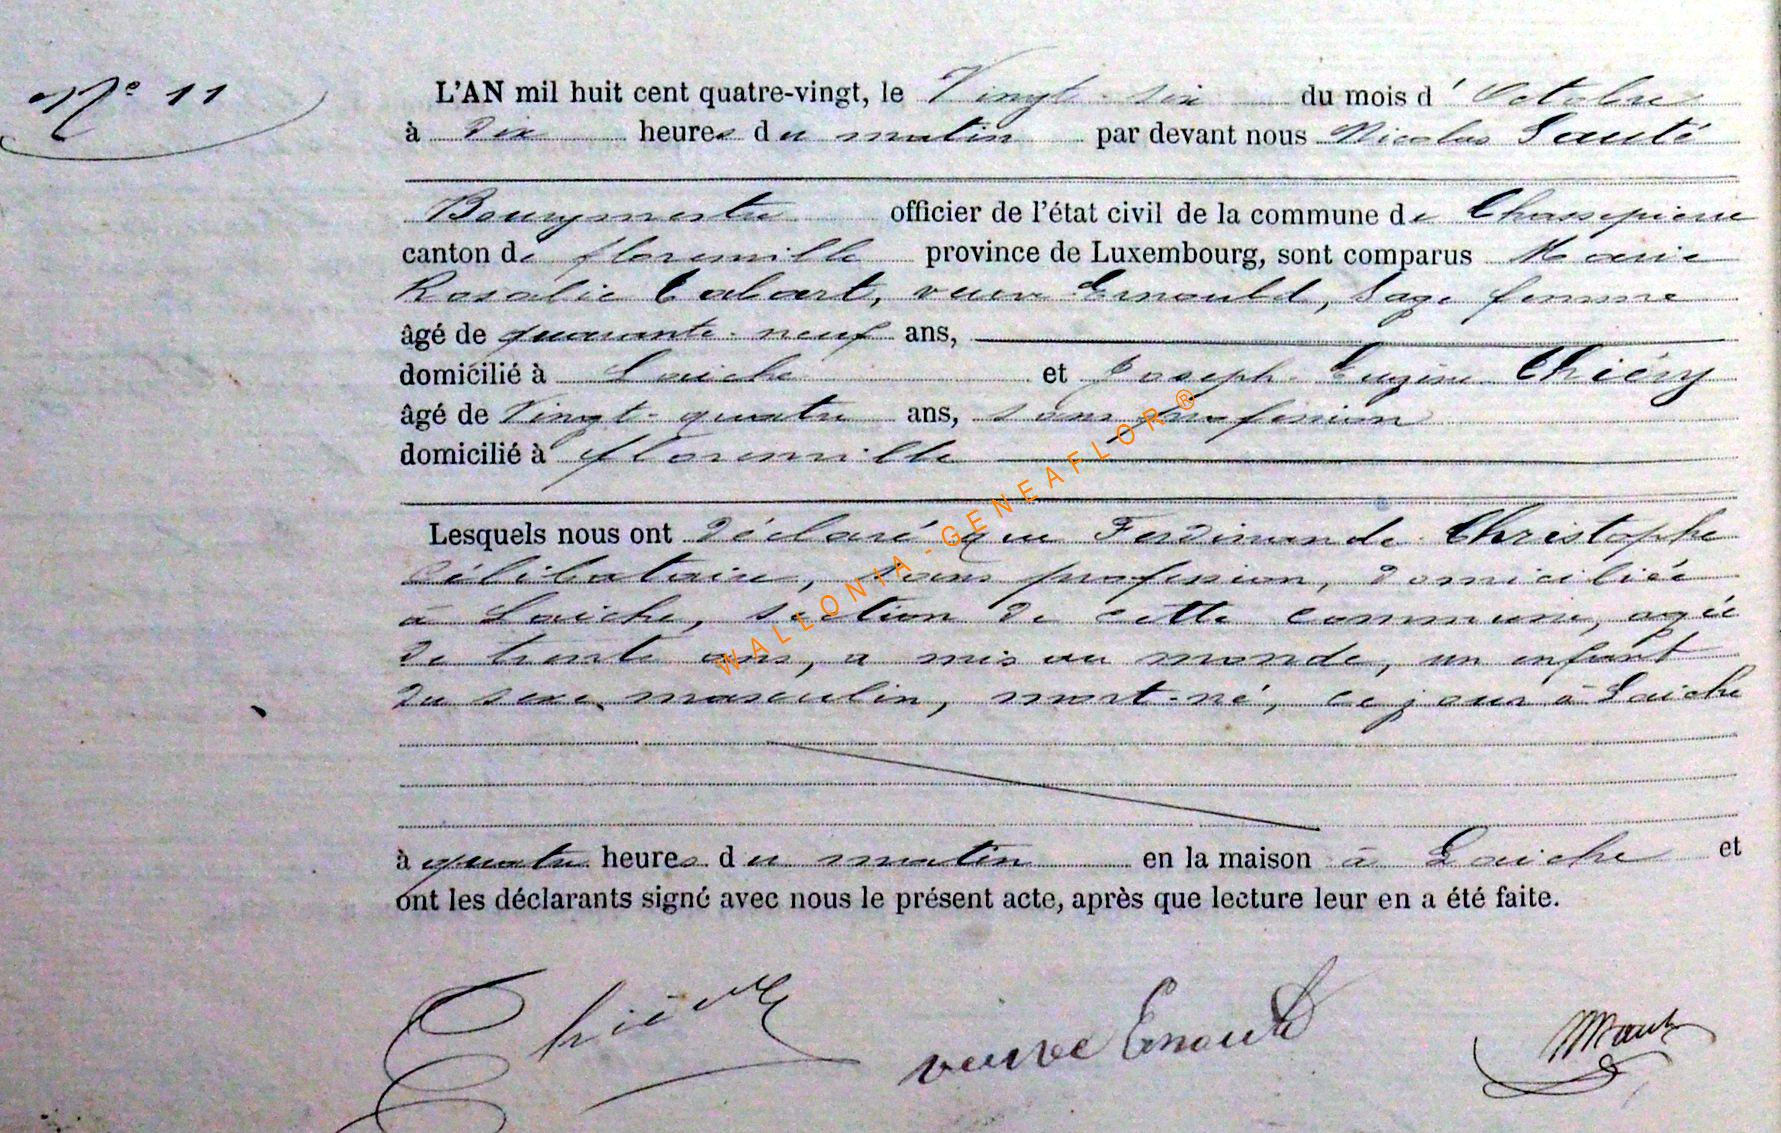 N° 11
L'AN mil huit cent quatre-vingt, le Vingt-six du mois d'Octobre
à Dix heures du matin par devant nous Nicolas Sauté
Bourgmestre officier de l'état civil de la commune de Chassepierre
canton de florenville province de Luxembourg, sont comparus Marie
Rosalie Calcart, veuve Ernould, Sage femme
âgé de quarante-neuf ans,
domicilié à Laiche et Joseph Eugène Thiéry
âgé de Vingt-quatre ans, sans profession
domicilié à florenville
Lesquels nous ont Déclaré que Ferdinande Christophe
Célibataire, sans profession, Domiciliée
à Laiche, section De cette commune, agée
De trente ans, a mis au monde, un enfant
Du sexe masculin, mort-né, ce jour à Laiche
à quatre heures du matin en la maison à Laiche et
ont les déclarants signé avec nous le présent acte, après que lecture leur en a été faite.
Thiéry veuve Ernould
WALLONIA-GENEAFLOR®